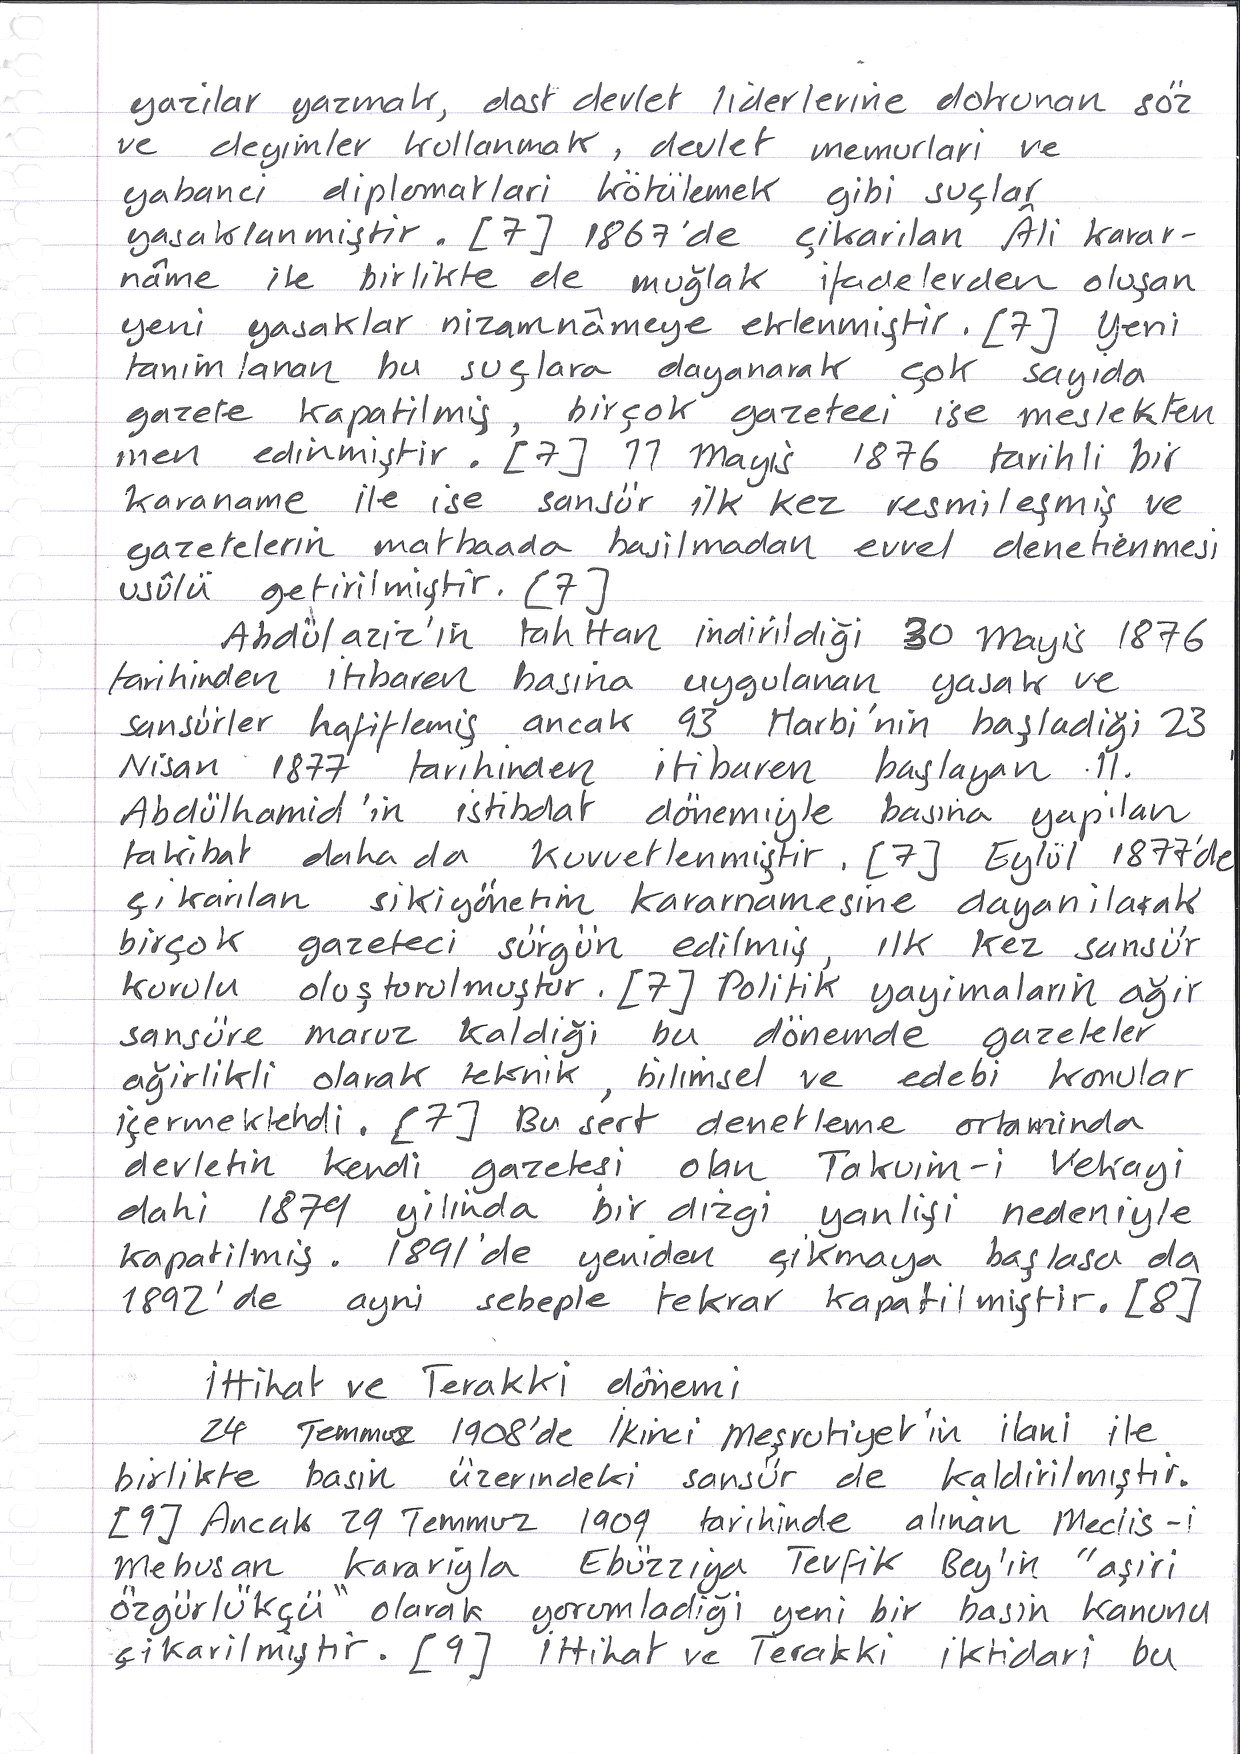 yazilar yazmak, dost devlet liderlerine dokunan söz
ve deyimler kullanmak, devlet memurlari ve
yabanci diplomatlari kötülemek gibi suçlar
yasaklanmiştir. [7] 1867'de çikarilan Âli karar-
nâme ile birlikte de muğlak ifadelerden oluşan
yeni yasaklar nizamnâmeye eklenmiştir. [7] Yeni
tanimlanan bu suçlara dayanarak çok sayida
gazete kapatilmiş, birçok gazeteci ise meslekten
men edinmiştir. [7] 11 Mayis 1876 tarihli bir
karaname ile ise sansür ilk kez resmileşmiş ve
gazetelerin matbaada basilmadan evvel denetlenmesi
usûlü getirilmiştir. [7]
Abdülaziz'in tahttan indirildiği 30 Mayis 1876
tarihinden itibaren basina uygulanan yasak ve
sansürler hafiflemiş ancak 93 Harbi'nin başladiği 23
Nisan 1877 tarihinden itibaren başlayan II.
Abdülhamid'in istibdat dönemiyle basina yapilan
takibat daha da kuvvetlenmiştir. [7] Eylül 1877'de
çikarilan sikiyönetim kararnamesine dayanilarak
birçok gazeteci sürgün edilmiş, ilk kez sansür
kurulu oluşturulmuştur. [7] Politik yayimalarin ağir
sansüre maruz kaldiği bu dönemde gazeteler
ağirlikli olarak teknik, bilimsel ve edebi konular
içermektehdi. [7] Bu sert denetleme ortaminda
devletin kendi gazetesi olan Takvim-i Vekayi
dahi 1879 yilinda bir dizgi yanlişi nedeniyle
kapatilmiş. 1891'de yeniden çikmaya başlasa da
1892'de ayni sebeple tekrar kapatilmiştir. [8]
İttihat ve Terakki dönemi
24 Temmuz 1908'de İkinci Meşrutiyet'in ilani ile
birlikte basin üzerindeki sansür de kaldirilmiştir.
[9] Ancak 29 Temmuz 1909 tarihinde alinan Meclis-i
Mebusan karariyla Ebüzziya Tevfik Bey'in "aşiri
özgürlükçü" olarak yorumladiği yeni bir basin kanunu
çikarilmiştir. [9] İttihat ve Terakki iktidari bu